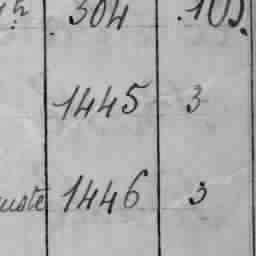 304
1445 3
uste 1446 3